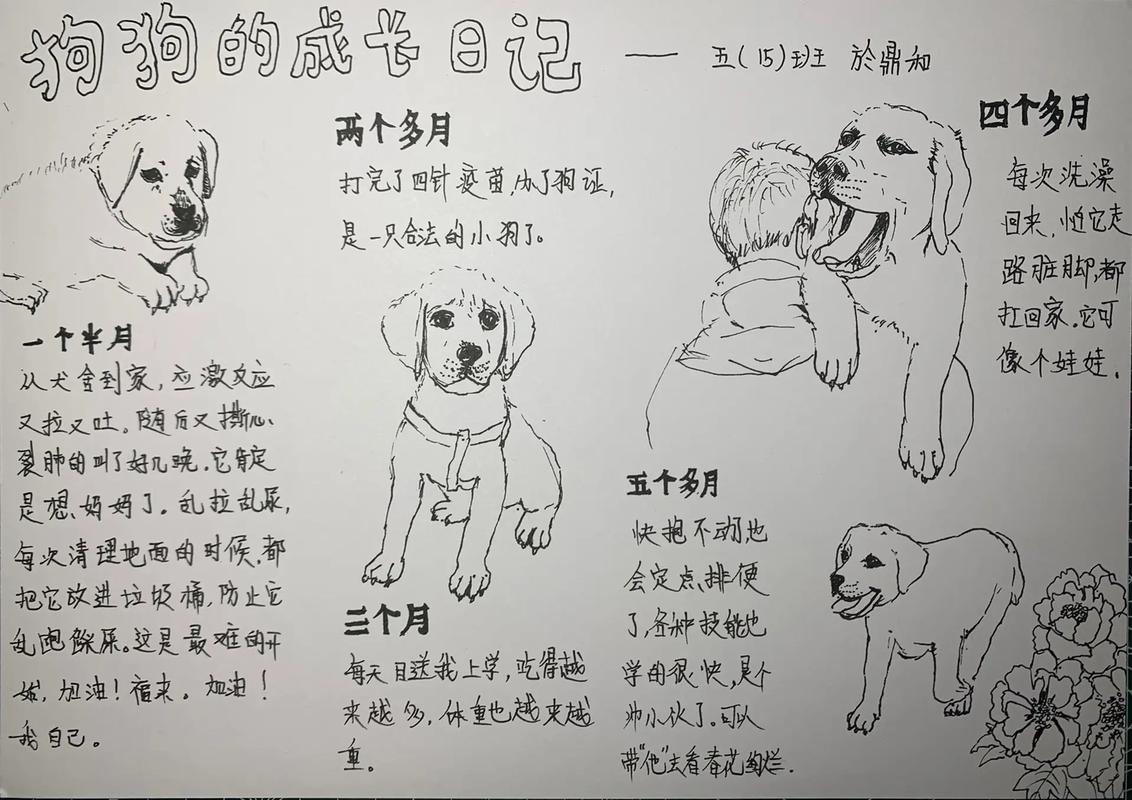 狗狗的成长日记 —— 五(15)班 於鼎和
一个半月
从犬舍到家，应激反应
又拉又吐。随后又撕心
裂肺的叫了好几晚，它肯定
是想妈妈了。乱拉乱尿，
每次清理地面的时候，都
把它放进垃圾桶，防止它
乱跑踩屎。这是最难的开
始，加油！福来。加油！
我自己。
两个多月
打完了四针疫苗，办了狗证，
是一只合法的小狗了。
三个月
每天目送我上学，吃得越
来越多，体重也越来越
重。
四个多月
每次洗澡
回来，怕它走
路脏脚，都
扛回家。它可
像个娃娃。
五个多月
快抱不动，也
会定点排便
了，各种技能也
学的很快，是个
帅小伙了。可以
带“他”去看春花绚烂.